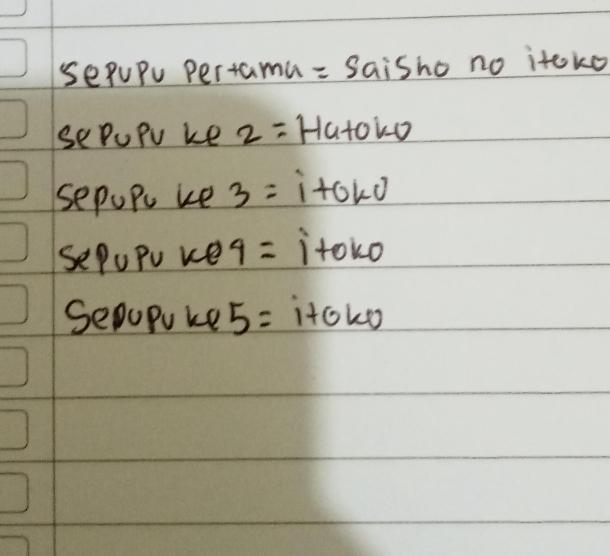 Sepupu Pertama = Saisho no itoko
Sepupu ke 2 = Hatoko
Sepupu ke 3 = itoko
Sepupu ke 4 = itoko
Sepupu ke 5 = itoko